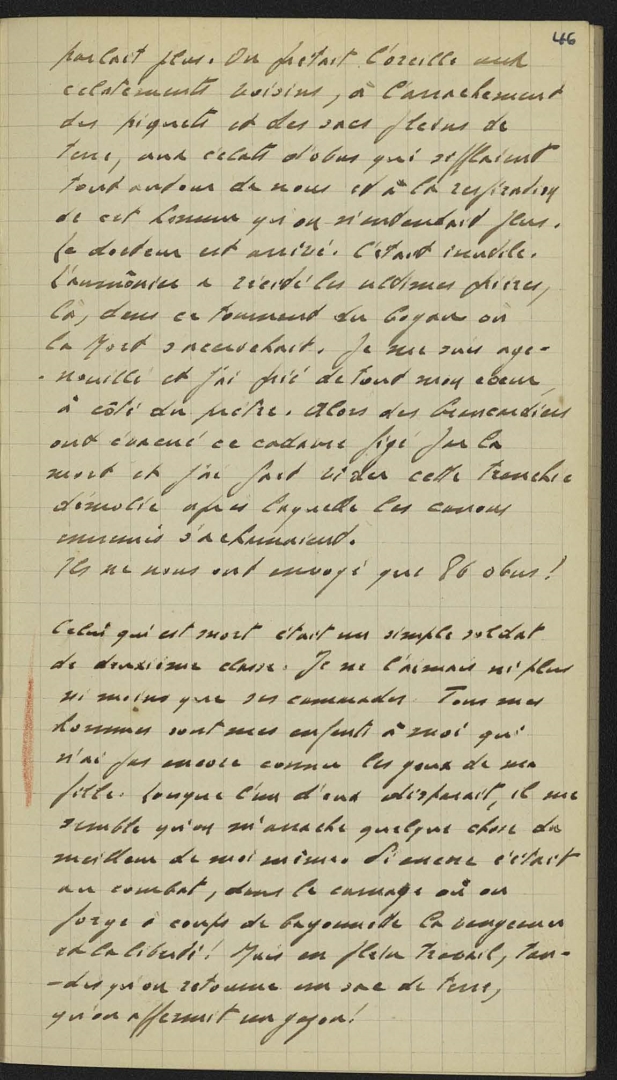 46
parlait plus. On prêtait l'oreille aux
éclatements voisins, à l'arrachement
des piquets et des sacs pleins de
terre, aux éclats d'obus qui sifflaient
tout autour de nous et à la respiration
de cet homme qu'on n'entendait plus.
Le docteur est arrivé. C'était inutile.
L'aumônier a récité les ultimes prières,
là, dans ce tournant du boyau où
la Mort s'accrochait. Je me suis age-
-nouillé et j'ai prié de tout mon cœur,
à côté du prêtre. Alors des brancardiers
ont évacué ce cadavre figé par la
mort et j'ai fait vider cette tranchée
démolie après laquelle les canons
ennemis s'acharnaient.
Ils ne nous ont envoyé que 86 obus!
Celui qui est mort était un simple soldat
de deuxième classe. Je ne l'aimais ni plus
ni moins que ses camarades. Tous mes
hommes sont mes enfants à moi qui
n'ai pas encore connu les yeux de ma
fille. Lorsque l'un d'eux disparaît, il me
semble qu'on m'arrache quelque chose du
meilleur de moi même. Si encore c'était
au combat, dans le carnage où on
forge à coups de bayonnette la vengeance
et la liberté! Mais en plein travail, tan-
-dis qu'on retourne un sac de terre,
qu'on affermit un gazon!